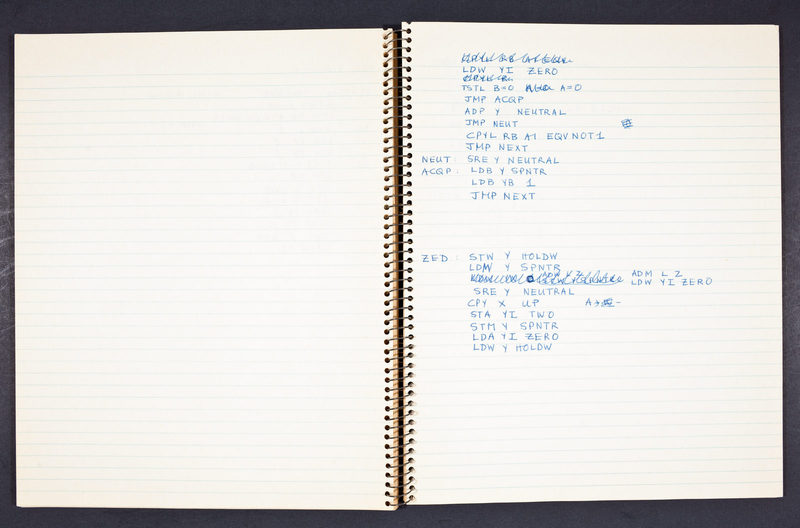 LDW YI ZERO
TSTL B=0 A=0
JMP ACQP
ADP Y NEUTRAL
JMP NEUT
CPYL RB A1 EQV NOT 1
JMP NEXT
NEUT: SRE Y NEUTRAL
ACQP: LDB Y SPNTR
LDB YB 1
JMP NEXT
ZED: STW Y HOLDW
LDM Y SPNTR
ADM L 2
LDW YI ZERO
SRE Y NEUTRAL
CPY X UP A→
STA YI TWO
STM Y SPNTR
LDA YI ZERO
LDW Y HOLDW